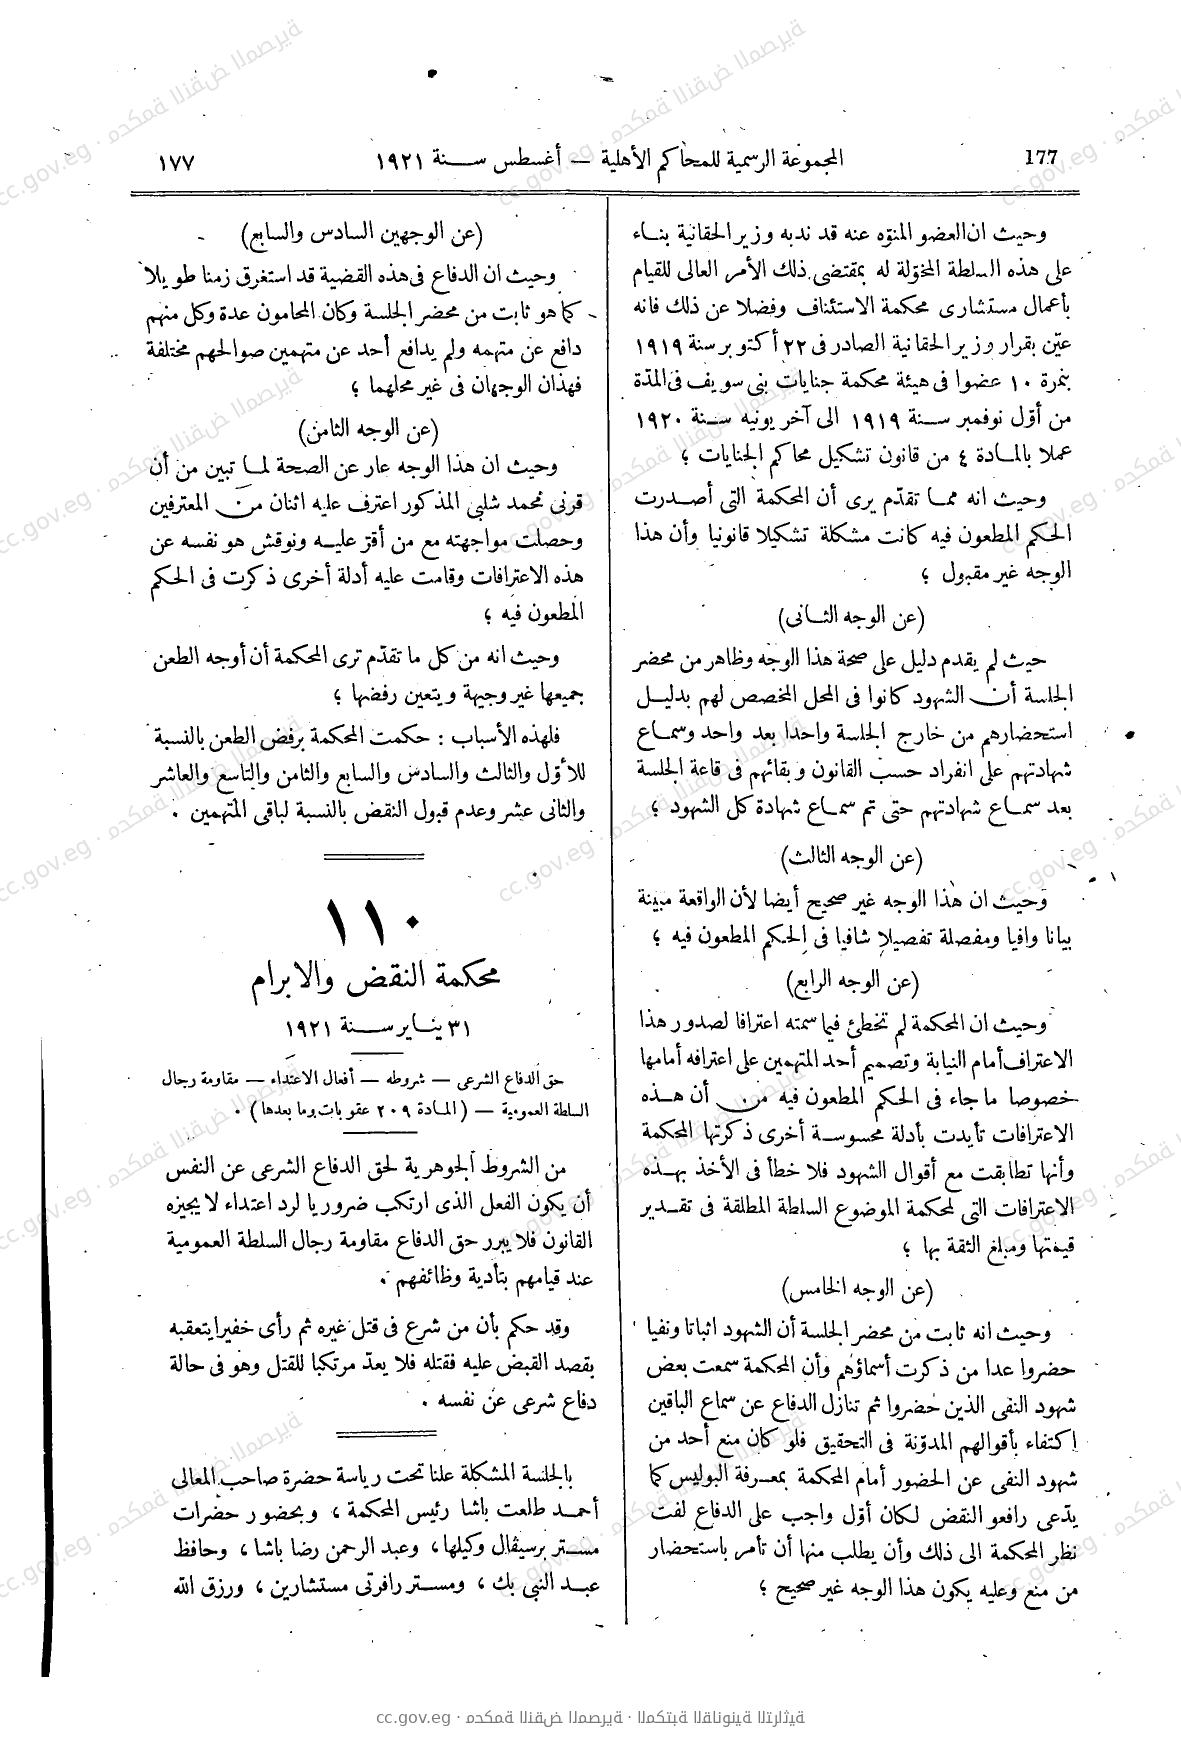 177
المجموعة الرسمية للمحاكم الأهلية — أغسطس سنة ١٩٢١
١٧٧
وحيث ان العضو المنوّه عنه قد ندبه وزير الحقانية بناء
على هذه السلطة المخوّلة له بمقتضى ذلك الأمر العالى للقيام
بأعمال مستشارى محكمة الاستئناف وفضلا عن ذلك فانه
عيّن بقرار وزير الحقانية الصادر فى ٢٢ أكتوبر سنة ١٩١٩
بنمرة ١٠ عضوا فى هيئة محكمة جنايات بنى سويف فى المدّة
من أوّل نوفمبر سنة ١٩١٩ الى آخر يونيه سنة ١٩٢٠
عملا بالمادة ٤ من قانون تشكيل محاكم الجنايات ؛
وحيث انه مما تقدّم يرى أن المحكمة التى أصدرت
الحكم المطعون فيه كانت مشكلة تشكيلا قانونيا وأن هذا
الوجه غير مقبول ؛
(عن الوجه الثانى)
حيث لم يقدم دليل على صحة هذا الوجه وظاهر من محضر
الجلسة أن الشهود كانوا فى المحل المخصص لهم بدليل
استحضارهم من خارج الجلسة واحدا بعد واحد وسماع
شهادتهم على انفراد حسب القانون وبقائهم فى قاعة الجلسة
بعد سماع شهادتهم حتى تم سماع شهادة كل الشهود ؛
(عن الوجه الثالث)
وحيث ان هذا الوجه غير صحيح أيضا لأن الواقعة مبينة
بيانا وافيا ومفصلة تفصيلا شافيا فى الحكم المطعون فيه ؛
(عن الوجه الرابع)
وحيث ان المحكمة لم تخطئ فيما سمته اعترافا لصدور هذا
الاعتراف أمام النيابة وتصميم أحد المتهمين على اعترافه أمامها
خصوصا ما جاء فى الحكم المطعون فيه من أن هذه
الاعترافات تأيدت بأدلة محسوسة أخرى ذكرتها المحكمة
وأنها تطابقت مع أقوال الشهود فلا خطأ فى الأخذ بهذه
الاعترافات التى لمحكمة الموضوع السلطة المطلقة فى تقدير
قيمتها ومبلغ الثقة بها ؛
(عن الوجه الخامس)
وحيث انه ثابت من محضر الجلسة أن الشهود اثباتا ونفيا
حضروا عدا من ذكرت أسماؤهم وأن المحكمة سمعت بعض
شهود النفى الذين حضروا ثم تنازل الدفاع عن سماع الباقين
اكتفاء بأقوالهم المدوّنة فى التحقيق فلو كان منع أحد من
شهود النفى عن الحضور أمام المحكمة بمعرفة البوليس كما
يدّعى رافعو النقض لكان أوّل واجب على الدفاع لفت
نظر المحكمة الى ذلك وأن يطلب منها أن تأمر باستحضار
من منع وعليه يكون هذا الوجه غير صحيح ؛
(عن الوجهين السادس والسابع)
وحيث ان الدفاع فى هذه القضية قد استغرق زمنا طويلا
كما هو ثابت من محضر الجلسة وكان المحامون عدة وكل منهم
دافع عن متهمه ولم يدافع أحد عن متهمين صوالحهم مختلفة
فهذان الوجهان فى غير محلهما ؛
(عن الوجه الثامن)
وحيث ان هذا الوجه عار عن الصحة لما تبين من أن
قرنى محمد شلبى المذكور اعترف عليه اثنان من المعترفين
وحصلت مواجهته مع من أقرّ عليه ونوقش هو نفسه عن
هذه الاعترافات وقامت عليه أدلة أخرى ذكرت فى الحكم
المطعون فيه ؛
وحيث انه من كل ما تقدّم ترى المحكمة أن أوجه الطعن
جميعها غير وجيهة ويتعين رفضها ؛
فلهذه الأسباب : حكمت المحكمة برفض الطعن بالنسبة
للأوّل والثالث والسادس والسابع والثامن والتاسع والعاشر
والثانى عشر وعدم قبول النقض بالنسبة لباقى المتهمين .
١١٠
محكمة النقض والابرام
٣١ يناير سنة ١٩٢١
حق الدفاع الشرعى — شروطه — أفعال الاعتداء — مقاومة رجال
السلطة العمومية — (المادة ٢٠٩ عقوبات وما بعدها) .
من الشروط الجوهرية لحق الدفاع الشرعى عن النفس
أن يكون الفعل الذى ارتكب ضروريا لرد اعتداء لا يجيزه
القانون فلا يبرر حق الدفاع مقاومة رجال السلطة العمومية
عند قيامهم بتأدية وظائفهم .
وقد حكم بأن من شرع فى قتل غيره ثم رأى خفيرا يتعقبه
بقصد القبض عليه فقتله فلا يعدّ مرتكبا للقتل وهو فى حالة
دفاع شرعى عن نفسه .
بالجلسة المشكلة علنا تحت رياسة حضرة صاحب المعالى
أحمد طلعت باشا رئيس المحكمة ، وبحضور حضرات
مستر برسيڤال وكيلها ، وعبد الرحمن رضا باشا ، وحافظ
عبد النبى بك ، ومستر رافرتى مستشارين ، ورزق الله
cc.gov.eg · محكمة النقض المصرية · المكتبة القانونية التراثية